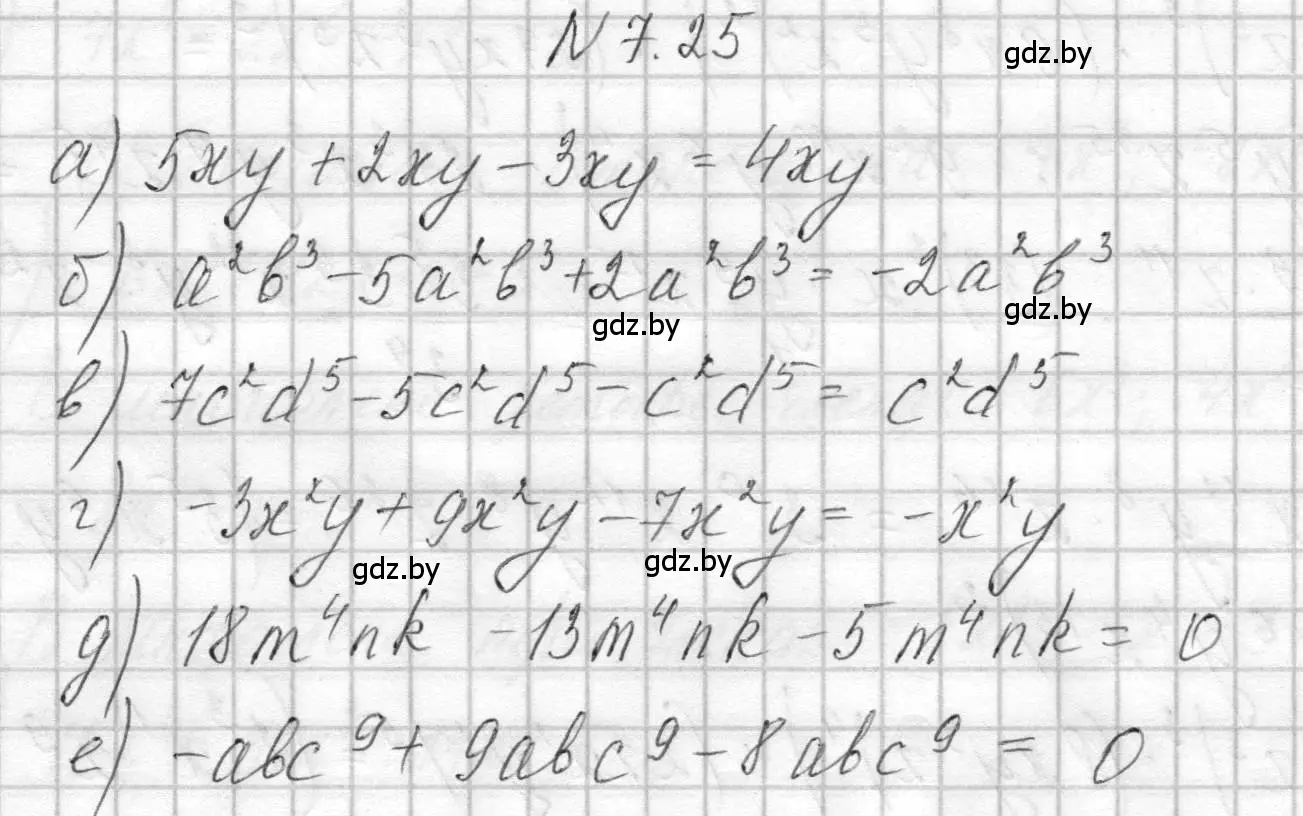 N 7.25
gdz.by
а) 5xy + 2xy - 3xy = 4xy
б) a²b³ - 5a²b³ + 2a²b³ = -2a²b³
gdz.by
gdz.by
в) 7c²d⁵ - 5c²d⁵ - c²d⁵ = c²d⁵
г) -3x²y + 9x²y - 7x²y = -x²y
gdz.by
gdz.by
д) 18m⁴nk - 13m⁴nk - 5m⁴nk = 0
е) -abc⁹ + 9abc⁹ - 8abc⁹ = 0